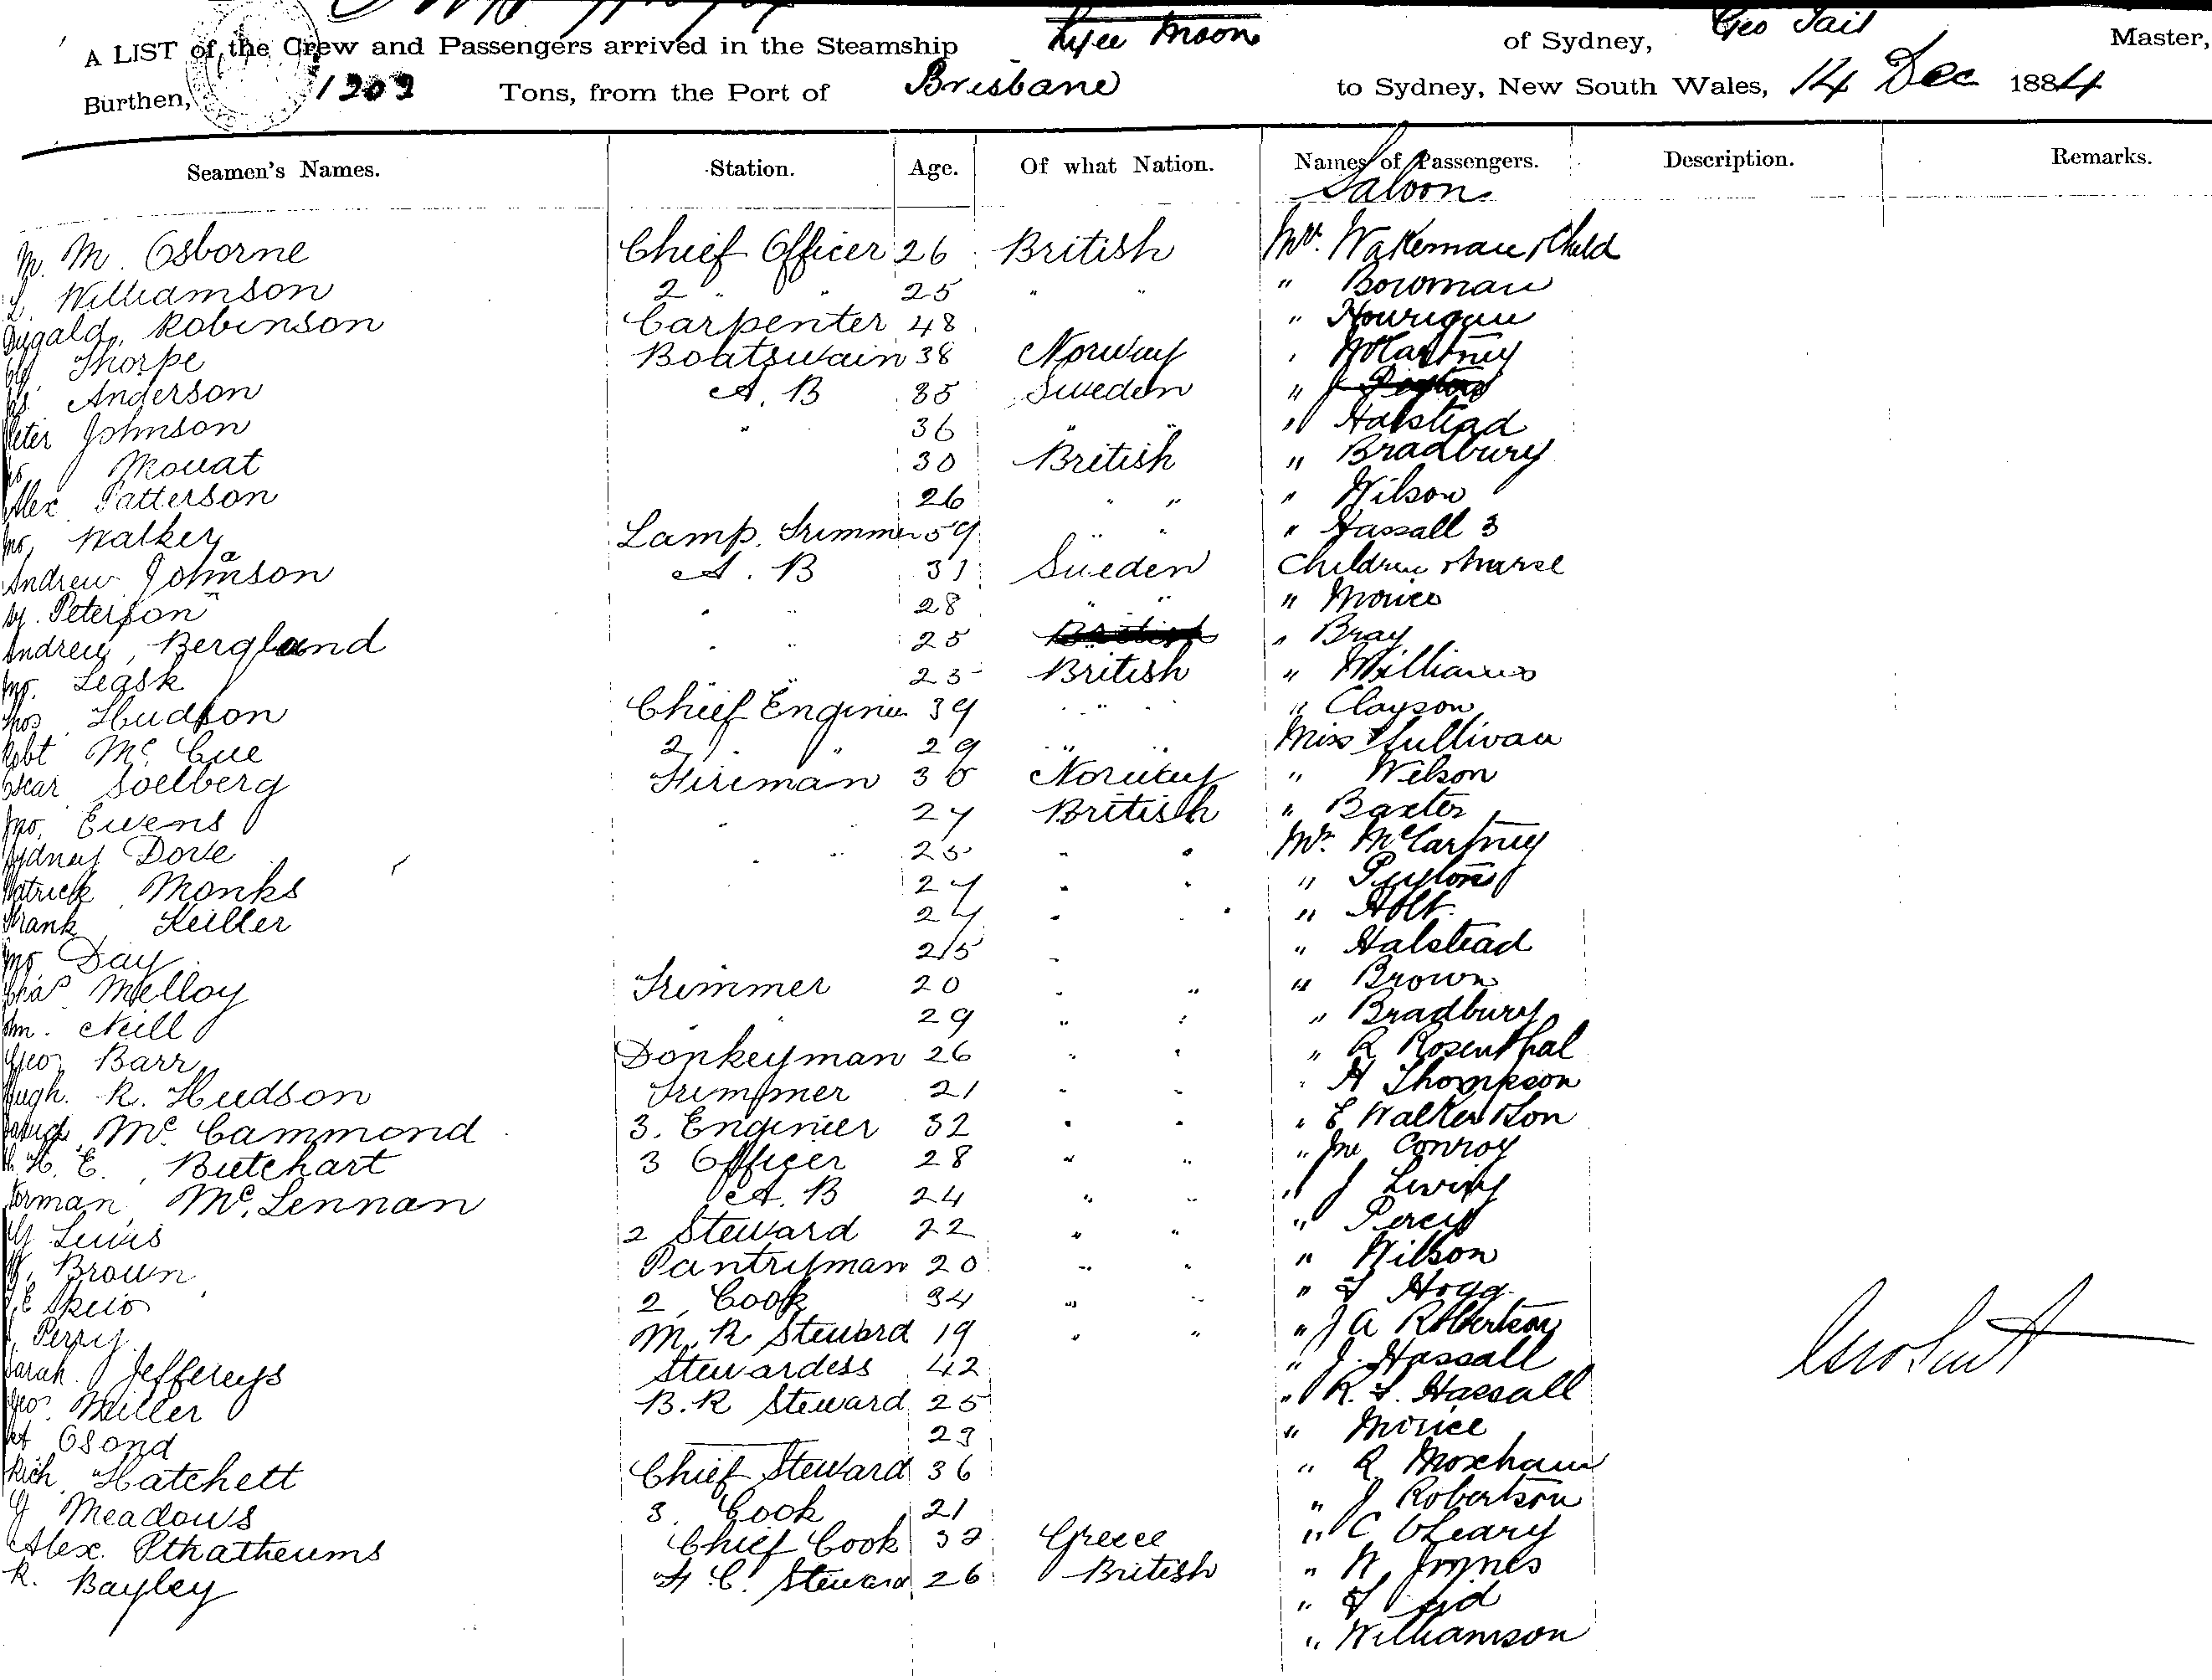 A LIST of the Crew and Passengers arrived in the Steamship Ly-ee Moon of Sydney, Geo Tait Master,
Burthen, 1202 Tons, from the Port of Brisbane to Sydney, New South Wales, 14 Dec 1884
Seamen's Names. Station. Age. Of what Nation. Names of Passengers. Description. Remarks.
Saloon
M. M. Osborne Chief Officer 26 British Mrs. Wakeman & Child
L. Williamson 2 " " 25 " " " Bowman
Dugald Robinson Carpenter 48 " Hourigan
Thorpe Boatswain 38 Norway " McCartney
Anderson A. B 35 Sweden "
Peter Johnson " 36 " " " Halstead
Mouat 30 British " Bradbury
Alex Patterson 26 " " " Wilson
Jno. Walker Lamp Trimmer 59 " " " Hassall 3
Andrew Johnson A. B 31 Sweden Children & Nurse
Peterson " " 28 " " " Morice
Andrew Bergland " " 25 British " Bray
Jno. Leask " " 23 British " Williams
Thos Hudson Chief Engineer 39 " " " Clayson
Robt McCue 2 " " 29 " " Miss Sullivan
Oscar Soelberg Fireman 30 Norway " Wilson
Jno. Ewens " " 27 British " Baxter
Sydney Dove " " 25 " " Mr. McCartney
Patrick Monks 27 " " " Peyton
Frank Keiller 27 " " " Holt
Jno Day 25 " " Halstead
Chas Melloy Trimmer 20 " " " Brown
Wm. Neill " " 29 " " " Bradbury
Geo. Barr Donkeyman 26 " " " R Rosenthal
Hugh. R. Hudson Trimmer 21 " " " H Thompson
David McCammond 3. Engineer 32 " " " E Walker & Son
H. E. Butchart 3 Officer 28 " " " Jno Conroy
Norman McLennan A. B 24 " " " J
Lewis 2 Steward 22 " " " Percy
W. Brown Pantryman 20 " " " Wilson
2, Cook 34 " " " F Hogg
Perry M. R Steward 19 " " " J A Robertson
Sarah Jeffereys Stewardess 42 " J. Hassall
Geo. Miller B. R Steward 25 " R. F. Hassall
Osond 23 " Morice
Rich Hatchett Chief Steward 36 " R Moxham
G Meadows 3. Cook 21 " J Robertson
Alex. Pthatheums Chief Cook 32 Greece " C O'Leary
R. Bayley F. C. Steward 26 British " W
"
" Williamson
Geo Tait